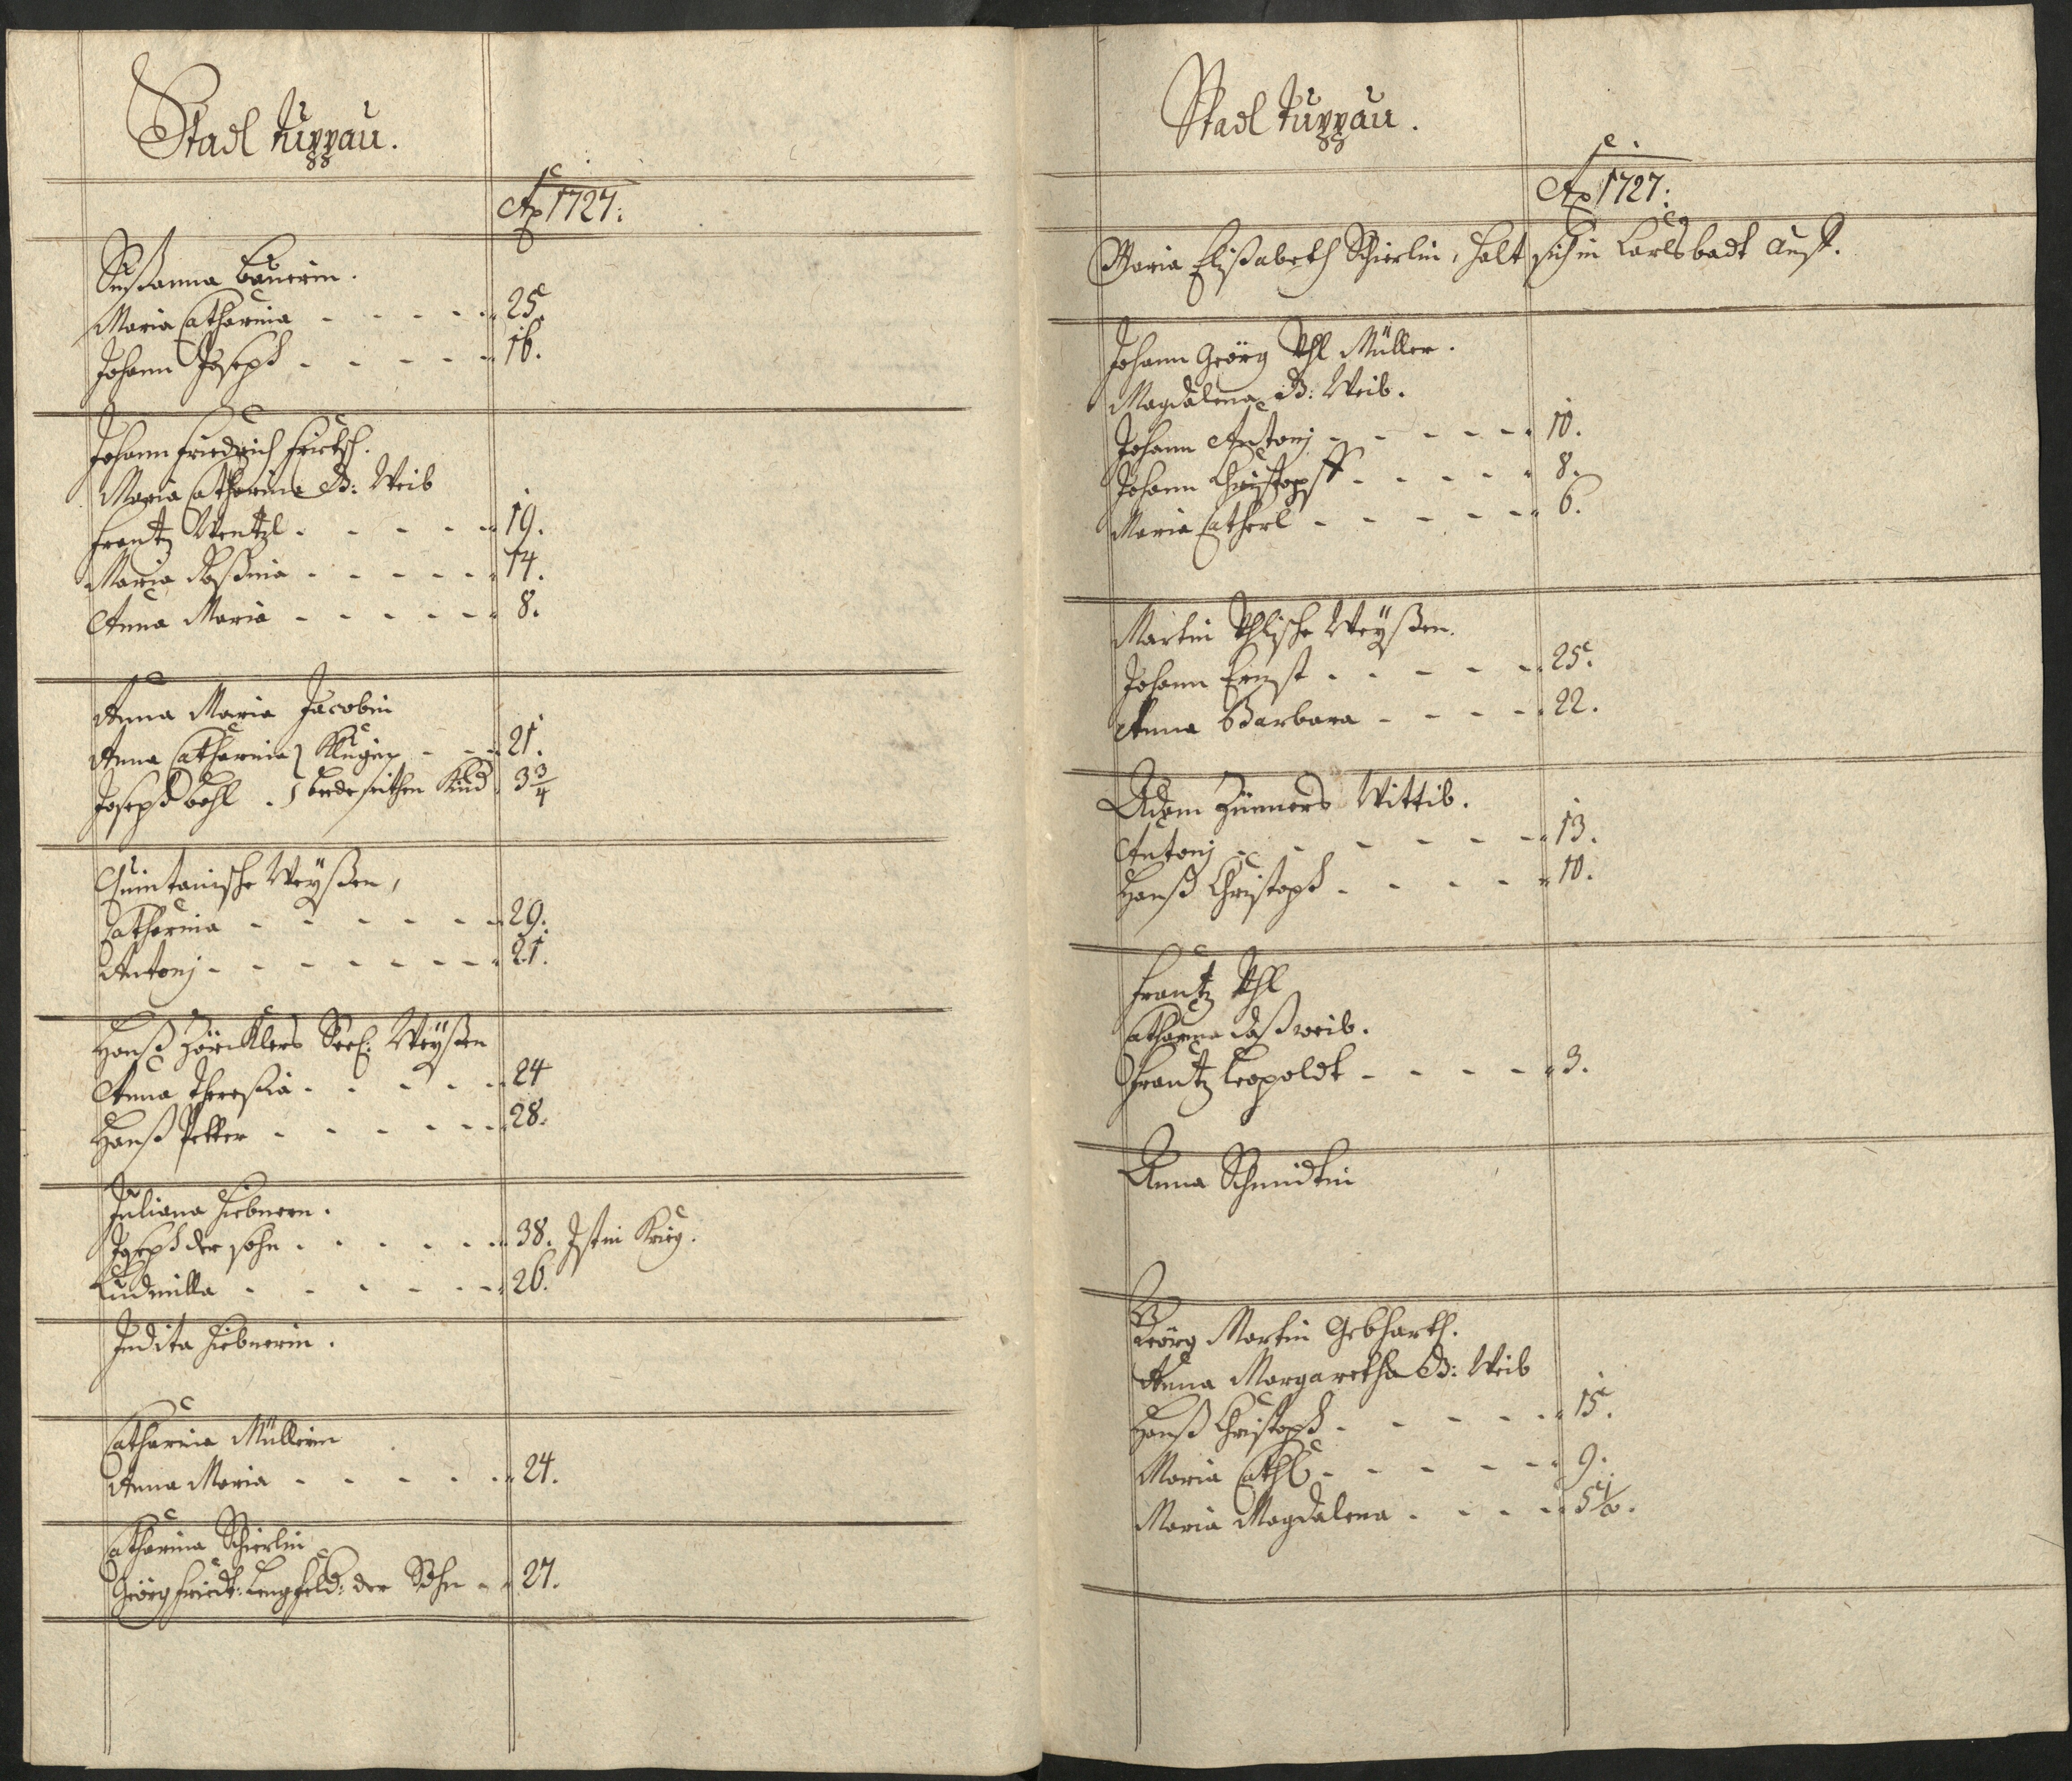 Stadl Tuppau.
Ao 1727:
Susßanna Bauerin.
Maria Catharina - - - - - 25.
Johann Joseph - - - - - 16.
Johann Friedrich Fritsch.
Maria Catharina B: Weib
Frantz Wentzl - - - - - 19.
Maria Roßina - - - - - 14.
Anna Maria - - - - - 8.
Anna Maria Jacobin
Anna Catharina } - - - 21.
Joseph } Kind 3 3/4
Quintanische Weyßen,
Catharina - - - - - - 29.
Antonj - - - - - - - 21.
Hanß Seel: Weyßen
Anna Theresia - - - - - 24
Hanß Petter - - - - - - 28.
Juliana Hiebnern.
Joseph der sohn - - - - - 38. Ist in Krieg.
Ludmilla - - - - - - 26.
Judita Hiebnerin.
Catharina Müllerin
Anna Maria - - - - - 24.
Catharina Schierlin
Geörg Friedr: Lengfeld: der Sohn - - 27.
Stadl Tuppau.
Ao 1727:
Maria Elißabeth Schierlin, halt sich in Carlsbadt auff.
Johann Geörg Vhl Müller.
Magdalena B: Weib.
Johann Antonj - - - - - 10.
Johann Christoph - - - - 8.
Maria Catherl - - - - - 6.
Martin Vhlische Weyßen.
Johann Ernst - - - - - 25.
Anna Barbara - - - - 22.
Adam Zünners Wittib.
Antonj - - - - - - 13.
Hanß Christoph - - - - 10.
Frantz Vhl
Catharina daß weib.
Frantz Leopoldt - - - - 3.
Anna Schmidtin
Geörg Martin Gebharth.
Anna Margaretha B: Weib
Hanß Christoph - - - - - 15.
Maria Cathl - - - - - 9.
Maria Magdalena - - - - 5 1/2.